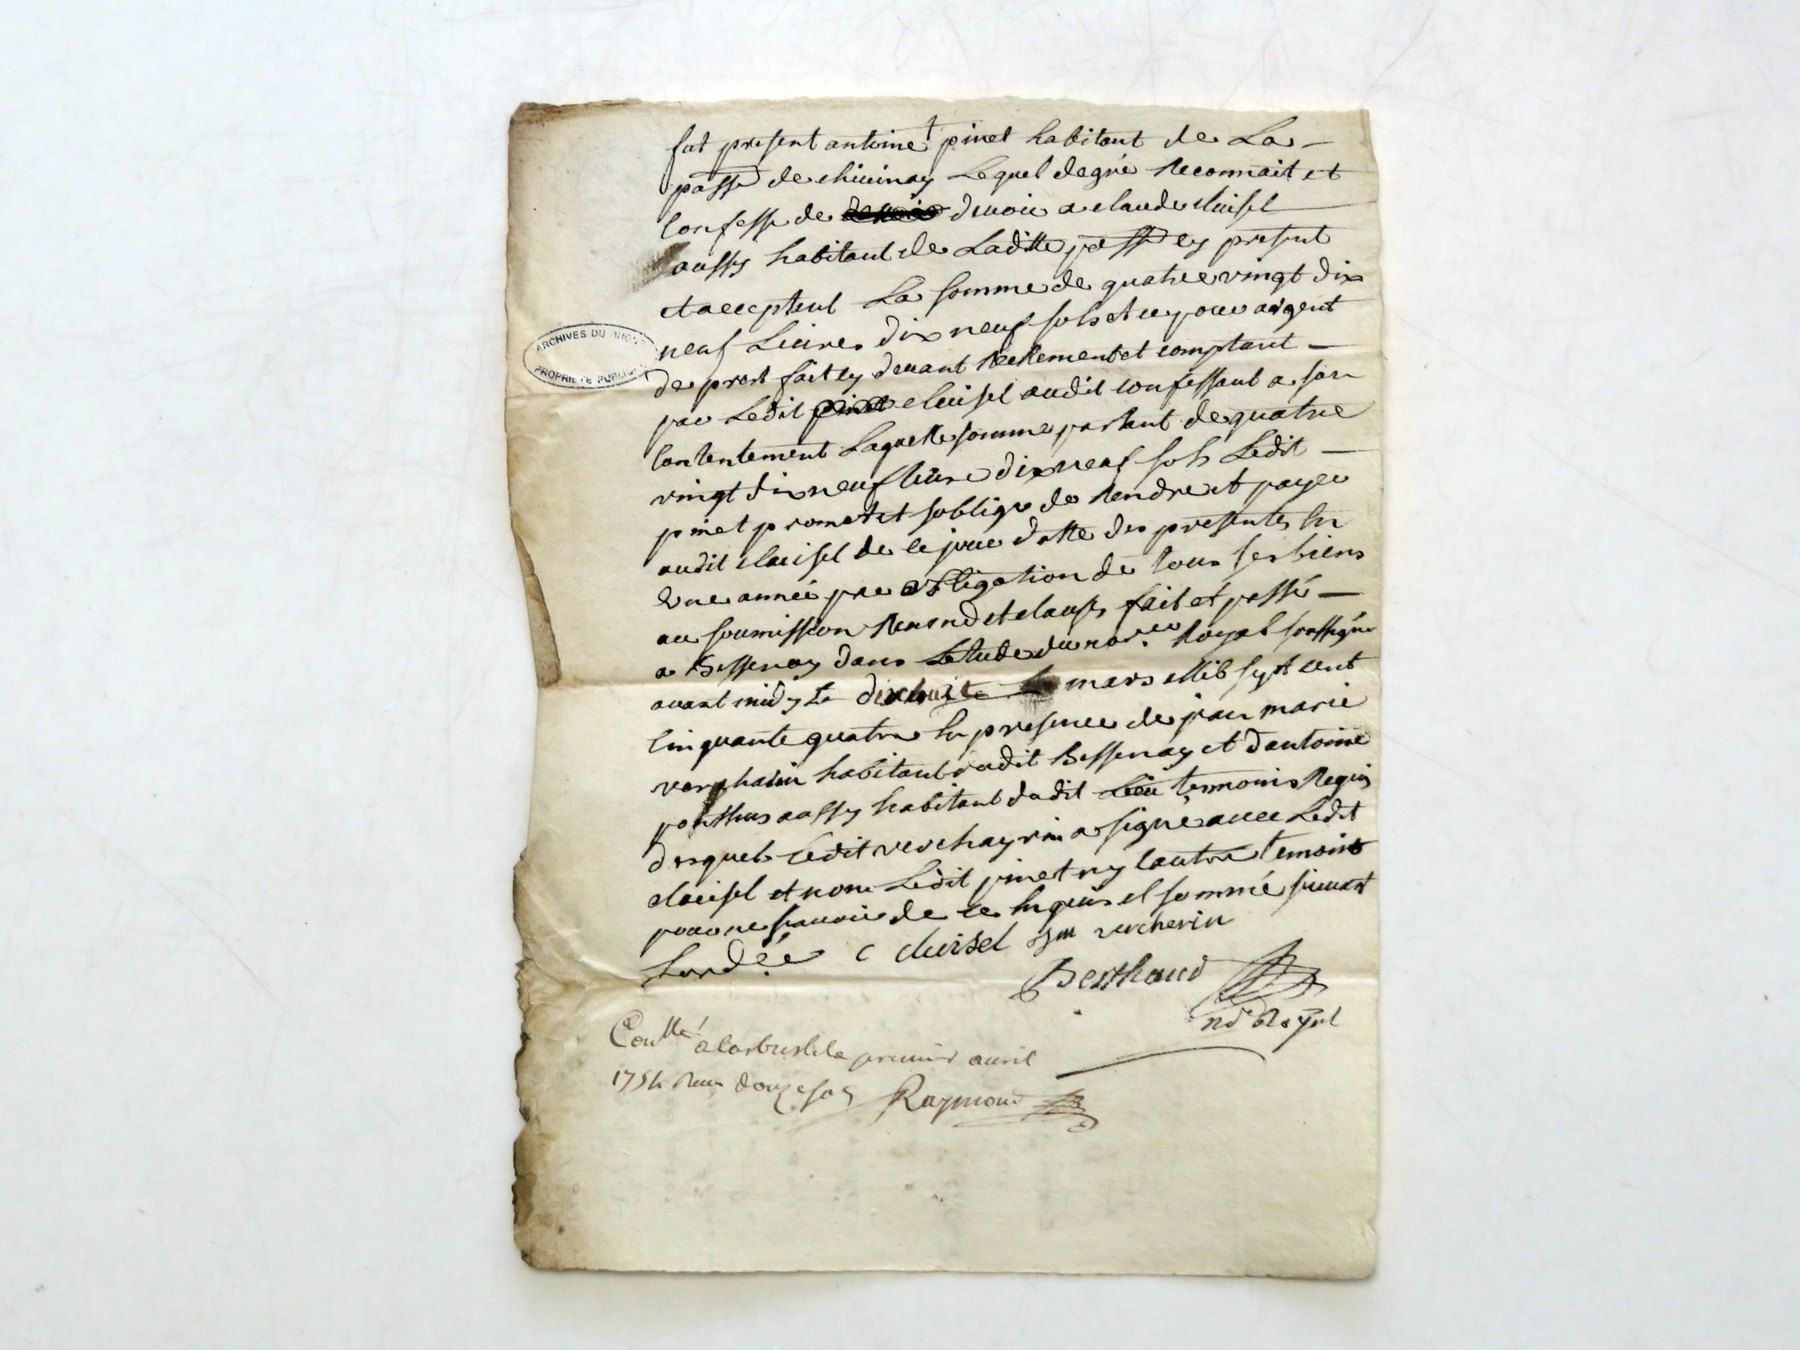 fut present antoine pinet habitant de La
passe de chivinay Lequel degré Reconnait et
Confesse de devoir a claude cluisel
aussy habitant de Laditte passe cy present
et acceptent La somme de quatre vingt dix
neuf Livres dix neuf sols et cy pour argent
ARCHIVES DU
PROPRIÉTÉ PUBLIQUE
de prest fait cy devant Reellement et comptant
par Ledit cluisel audit confessant a son
contentement Laquelle somme partant de quatre
vingt dix neuf livre dix neuf sols Ledit
pinet promet et soblige de Rendre et payer
audit cluisel de ce jour datte des presentes en
une année par obligation de tous ses biens
au soumission Renond et clauses fait et passé
a Bessenay dans Letude du no.re Royal soussigné
avant midy Le dix huit mars mil sept cent
cinquante quatre En presence de jean marie
verchairin habitant dudit Bessenay et dantoine
ponthus aussy habitant dudit Lieu temoins Requis
desquels Ledit verchayrin a signé avec Ledit
cluisel et non Ledit pinet ny lautre temoins
pour ne scavoir de ce Enquis et sommé suivant
Lord.ce C cluisel jm vercherin
Berthaud
no.re Royal
Con.llé a Larbresle le premier avril
1754 Reçu douze sols Raymond